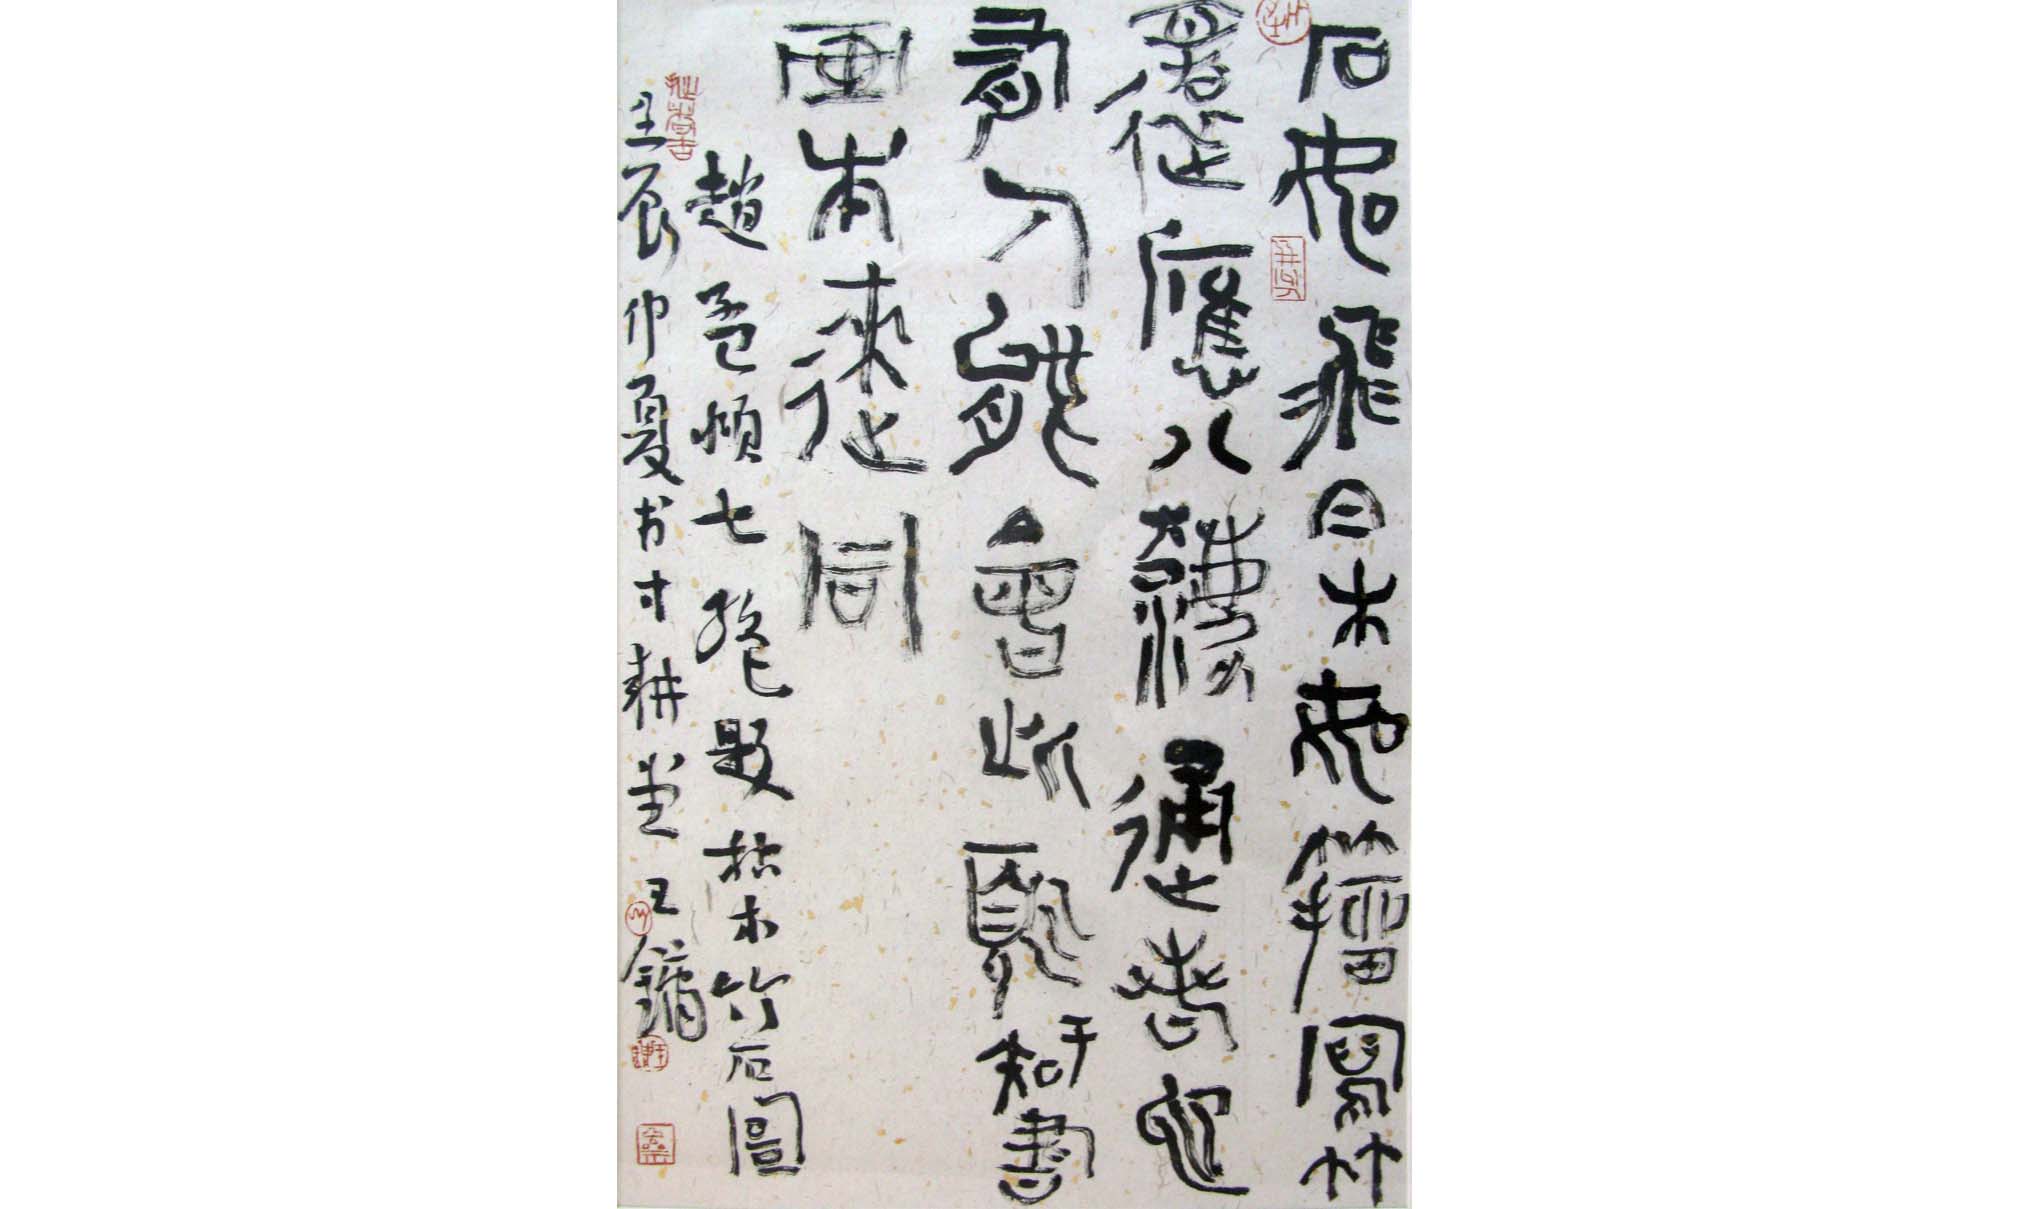 石如飛白木如籀寫竹
還應八灋通若也
有人能會此須知書
画本來同
趙孟頫七絕題枯木竹石圖
壬辰仲夏书寸耕堂王鏞